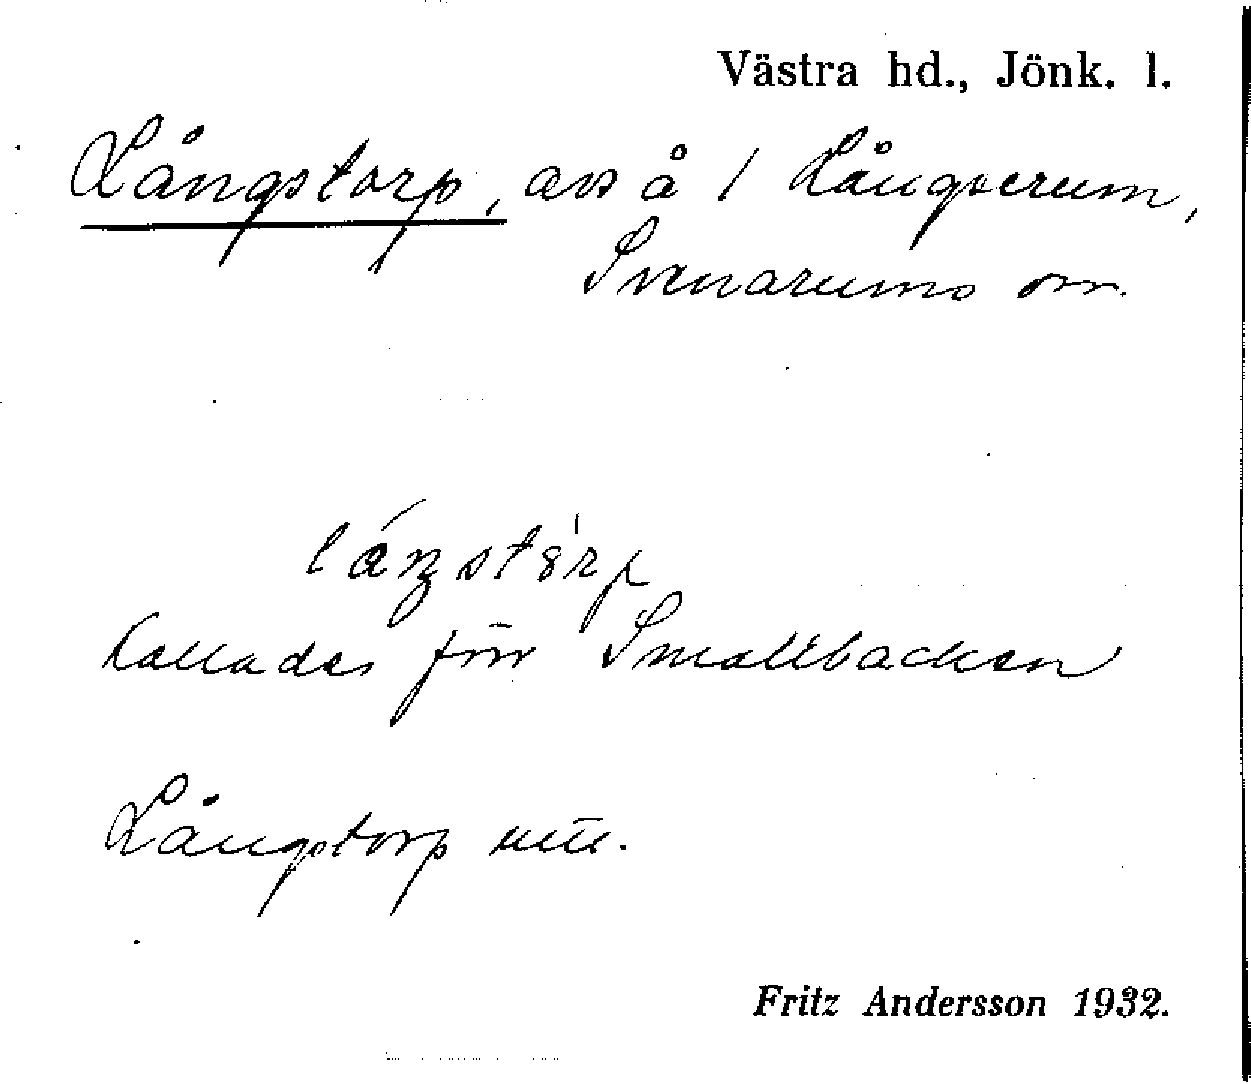 Västra hd., Jönk. l.
Långstorp, avs å 1 Långserum,
Svenarums sn.
kallades förr Smällbacken
Långstorp
Fritz Andersson 1932.